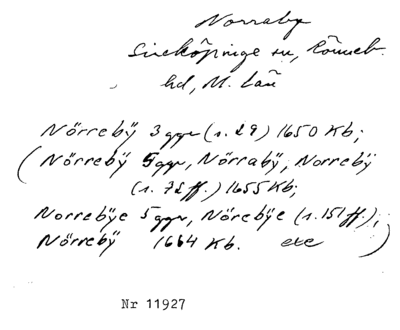 Norraby
Simeköpinge sn, Rönneb.
hd, M. län
Nörrebÿ 3 ggr (s. 29) 1650 Kb;
(Nörrebÿ 5 ggr, Nörrabÿ, Norrebÿ
(s. 75 ff.) 1655 Kb;
Norrebÿe 5 ggr, Nörebÿe (s. 151 ff.);
Nörrebÿ 1664 Kb. etc)
Nr 11927